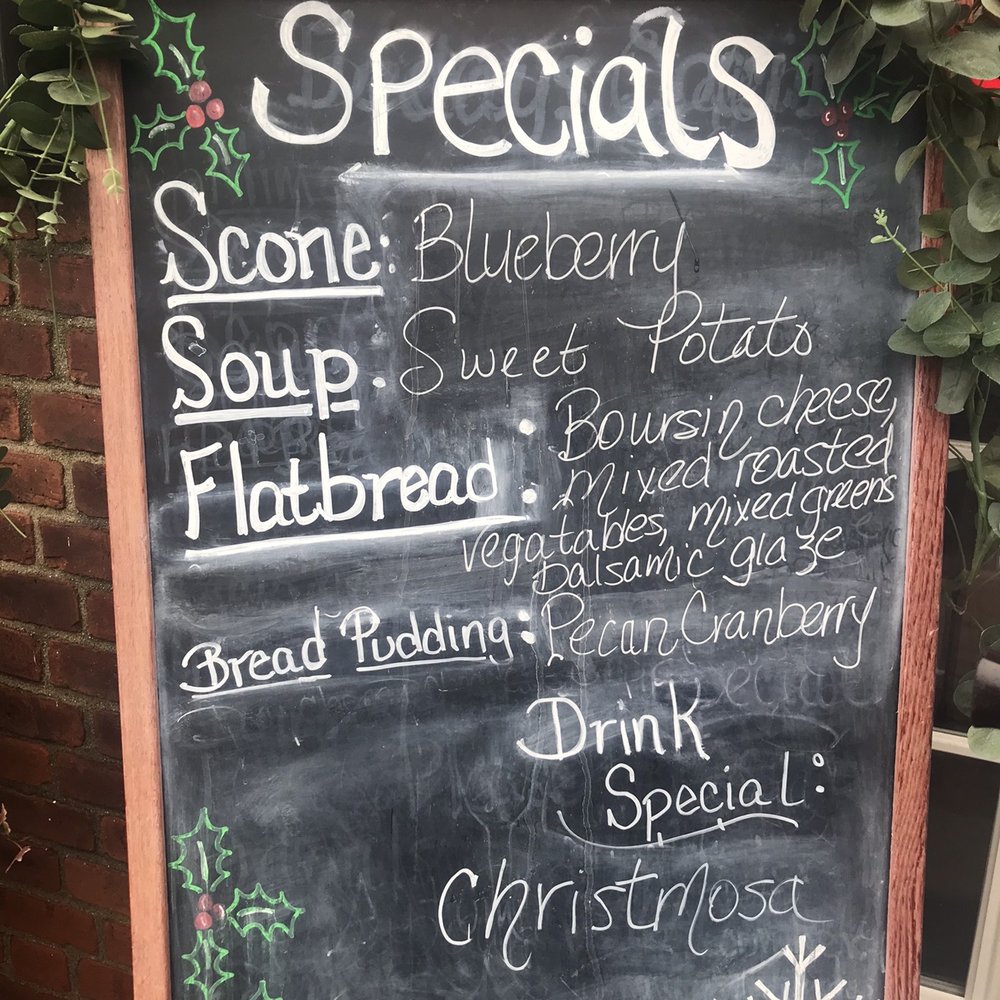 Specials
Scone: Blueberry
Soup. Sweet Potato
Flatbread: Boursin cheese,
mixed roasted
vegatables, mixed greens
balsamic glaze
Bread Pudding: Pecan Cranberry
Drink
Special:
Christmosa